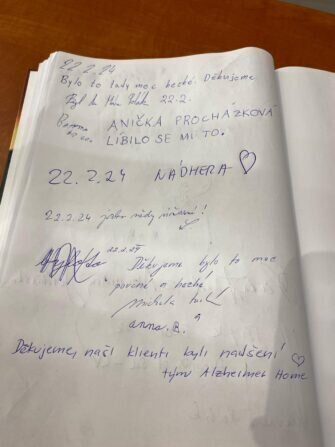 22.2.24
Bylo to tady moc hezké. Děkujeme
Byl to 22.2.
ANIČKA PROCHÁZKOVÁ
LÍBILO SE MI TO.
22.2.24 NÁDHERA
22.2.24 jako vždy úžasní!
22.2.24
Děkujeme bylo to moc
poučné a hezké
Michala
anna B.
Děkujeme, naši klienti byli nadšení
tým Alzheimer Home